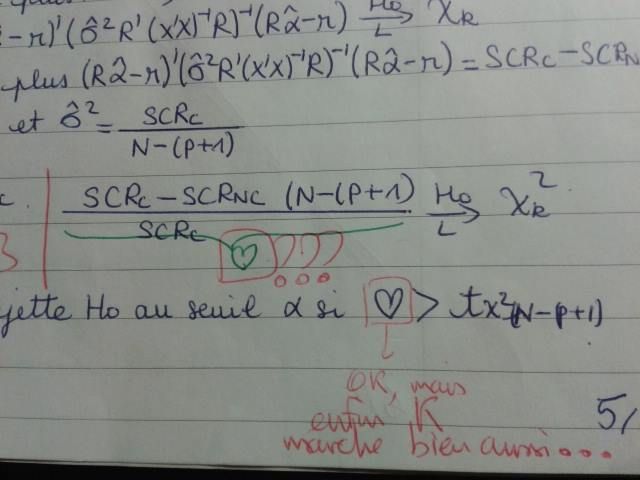 -r)'(σ̂²R'(x'x)⁻¹R)⁻¹(Rα̂-r) —H₀/L→ χR
plus (Rα̂-r)'(σ̂²R'(x'x)⁻¹R)⁻¹(Rα̂-r) = SCRc-SCRN
et σ̂² = SCRc / N-(p+1)
c. SCRc-SCRNC (N-(p+1) / SCRc —H₀/L→ χ²R
♡ ???
jette Ho au seuil α si ♡ > tχ²(N-p+1)
OK, mais
enfin K
marche bien aussi...
5/